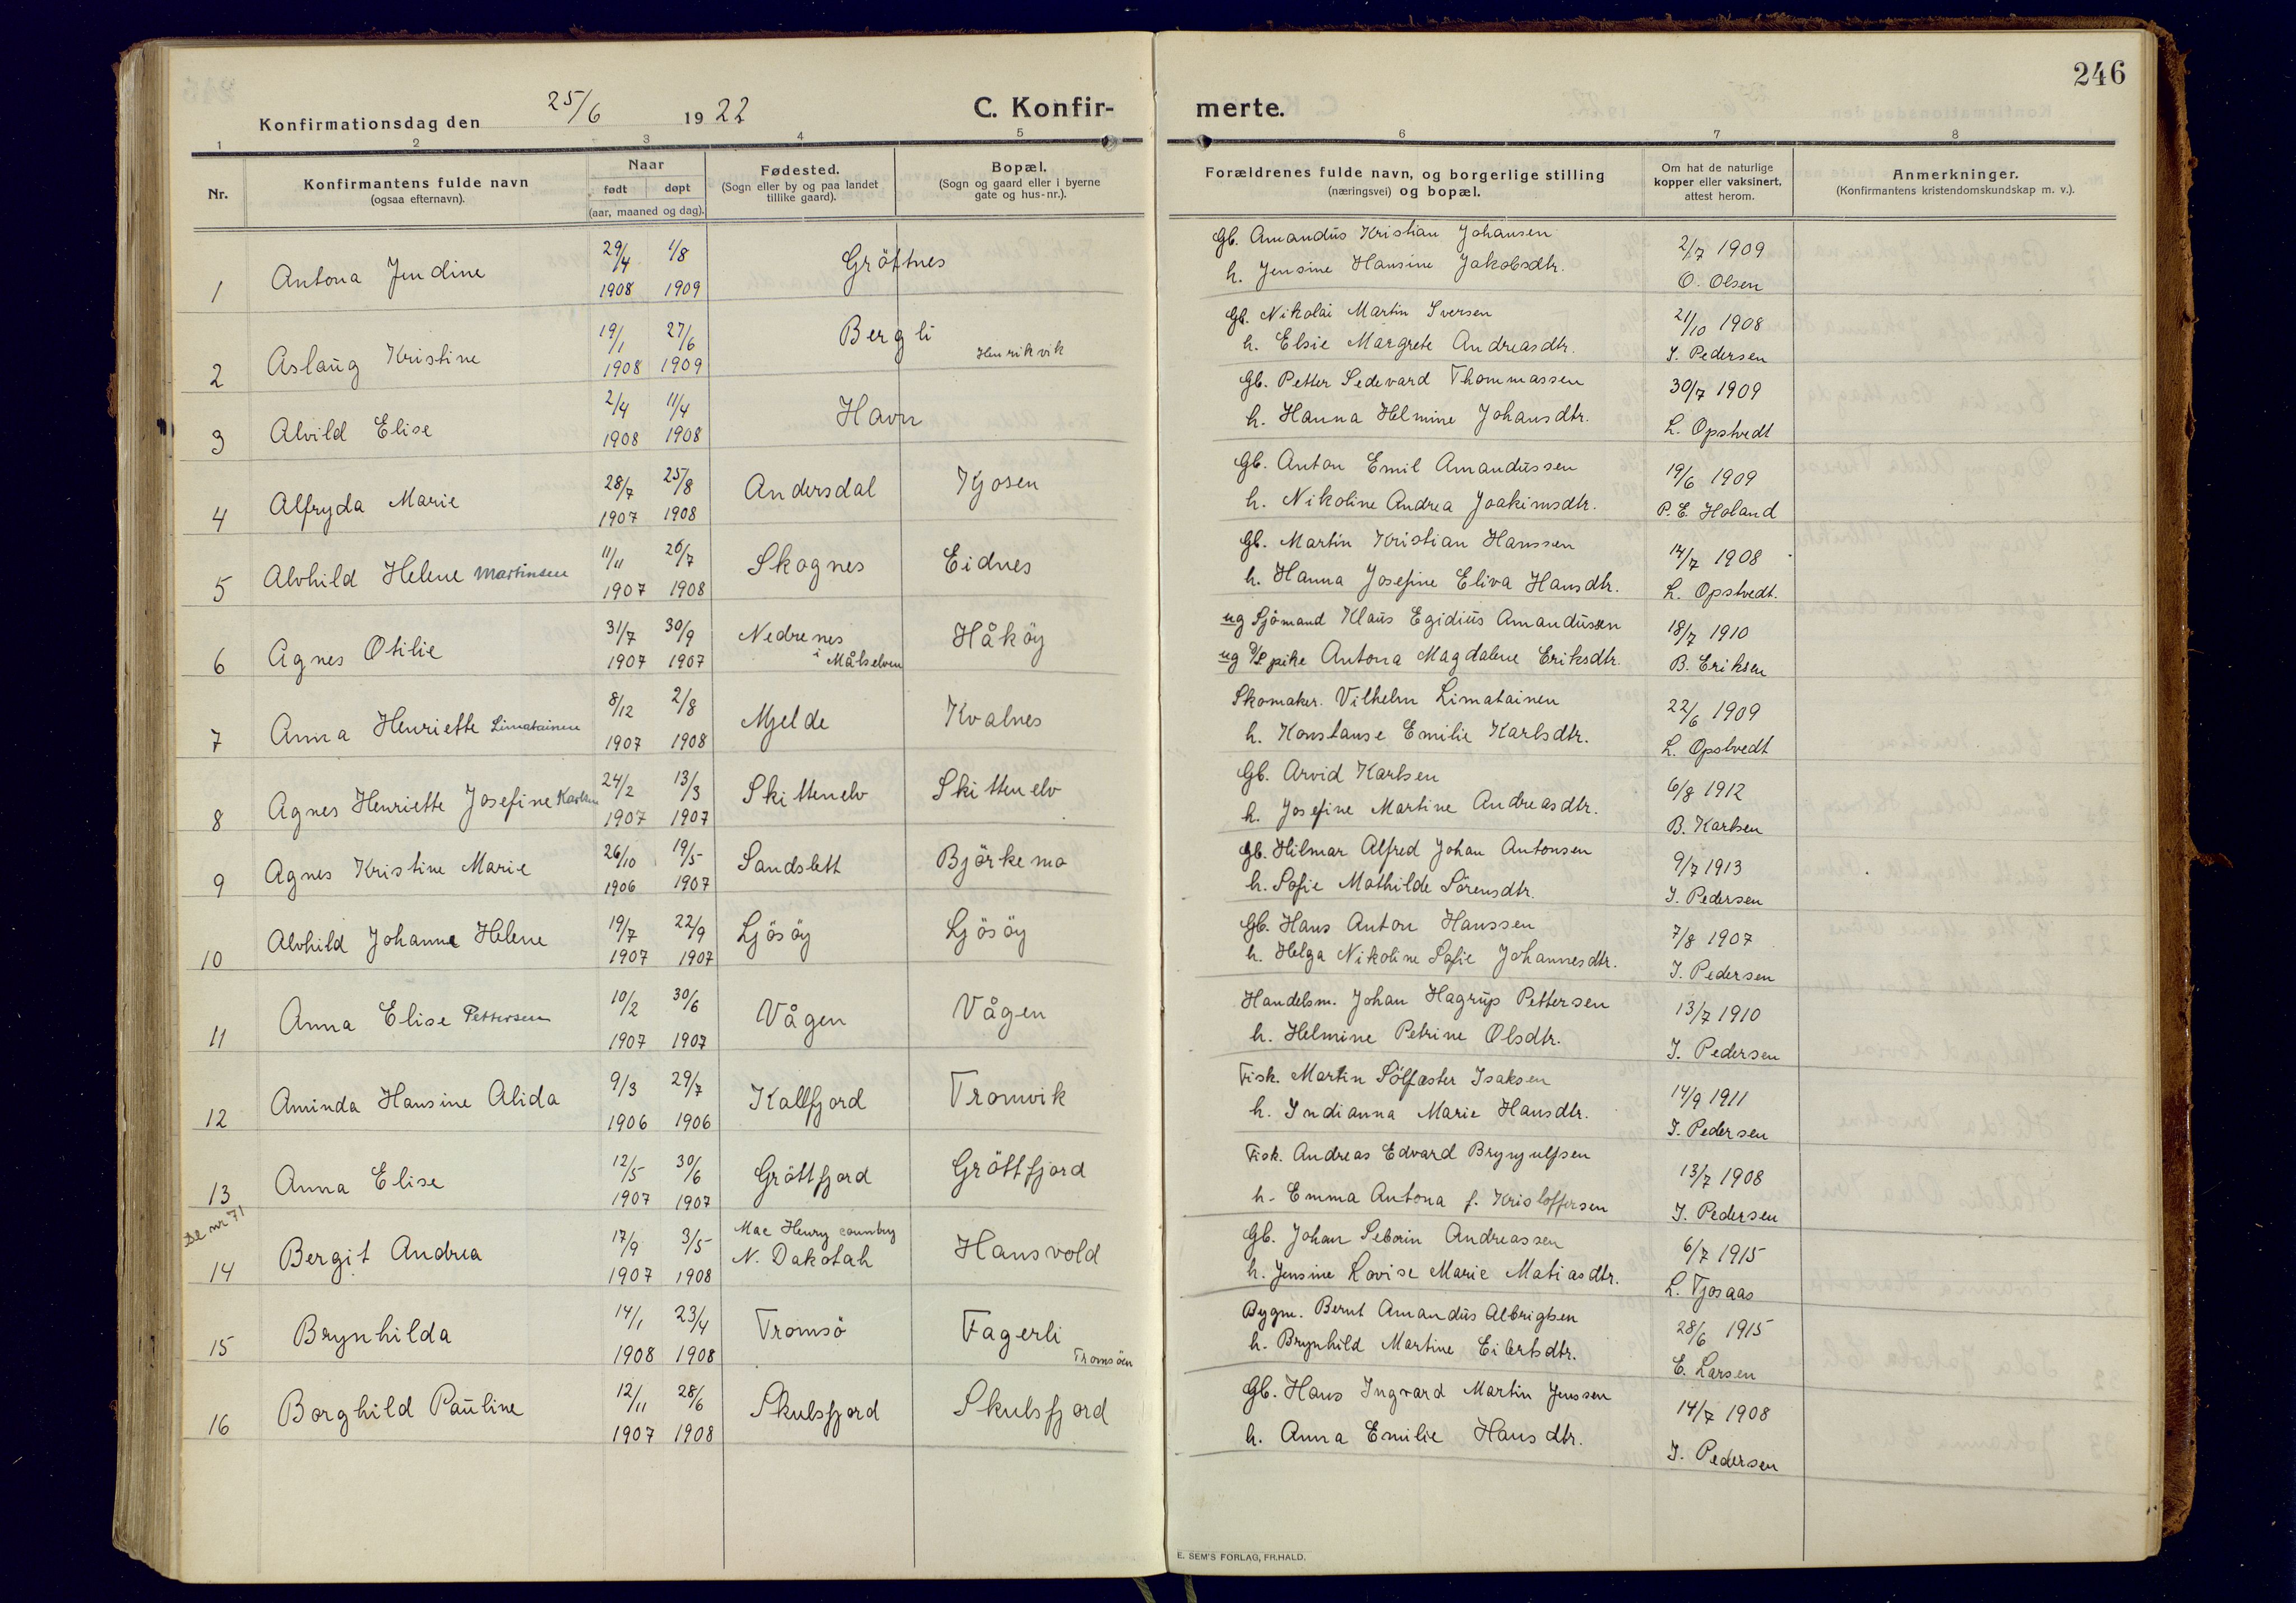 246
Konfirmationsdag den 25/6 1922
C. Konfir-
merte.
1 2 3 4 5 6 7 8
Nr.
Konfirmantens fulde navn
(ogsaa efternavn).
Naar
født døpt
(aar, maaned og dag).
Fødested.
(Sogn eller by og paa landet
tillike gaard).
Bopæl.
(Sogn og gaard eller i byerne
gate og hus-nr.).
Forældrenes fulde navn, og borgerlige stilling
(næringsvei) og bopæl.
Om hat de naturlige
kopper eller vaksinert,
attest herom.
Anmerkninger.
(Konfirmantens kristendomskundskap m. v.).
1 Antona Jendine 29/4 1908 1/8 1909 Gröftnes
Gb. Amandus Kristian Johansen 2/7 1909
h. Jensine Hansine Jakobsdtr. O. Olsen
2 Aslaug Kristine 19/1 1908 27/6 1909 Bergli Henrikvik
Gb. Nikolai Martin Iversen 21/10 1908
h. Elsie Margrete Andreasdtr. I. Pedersen
3 Alvild Elise 2/4 1908 11/4 1908 Havn
Gb. Petter Sedevard Thommassen 30/7 1909
h. Hanna Helmine Johansdtr. L. Opstvedt
4 Alfryda Marie 28/7 1907 25/8 1908 Andersdal Kjosen
Gb. Anton Emil Amandussen 19/6 1909
h. Nikoline Andrea Joakimsdtr. P. E. Holand
5 Alvhild Helene Martinsen 11/11 1907 26/7 1908 Skognes Eidnes
Gb. Martin Kristian Hanssen 14/7 1908
h. Hanna Josefine Eliva Hansdtr. L. Opstvedt.
6 Agnes Otilie 31/7 1907 30/9 1907 Nedrenes i Målselven Håköy
ug Sjömand Klaus Egidius Amandussen 18/7 1910
ug pike Antona Magdalene Eriksdtr. B. Eriksen
7 Anna Henriette Limatainen 8/12 1907 2/8 1908 Mjelde Kvalnes
Skomaker. Vilhelm Limatainen 22/6 1909
h. Konstanse Emilie Karlsdtr. L. Opstvedt
8 Agnes Henriette Josefine Karlsen 24/2 1907 13/3 1907 Skittenelv Skittenelv
Gb. Arvid Karlsen 6/8 1912
h. Josefine Martine Andreasdtr. B. Karlsen
9 Agnes Kristine Marie 26/10 1906 19/5 1907 Sandslett Björkemo
Gb. Hilmar Alfred Johan Antonsen 9/7 1913
h. Sofie Mathilde Sörensdtr. I. Pedersen
10 Alvhild Johanne Helene 19/7 1907 22/9 1907 Ljösöy Ljösöy
Gb. Hans Anton Hanssen 7/8 1907
h. Helga Nikoline Sofie Johannesdtr. I. Pedersen
11 Anna Elise Pettersen 10/2 1907 30/6 1907 Vågen Vågen
Handelsm. Johan Hagrup Pettersen 13/7 1910
h. Helmine Petrine Olsdtr. I. Pedersen
12 Aminda Hansine Alida 9/3 1906 29/7 1906 Kallfjord Tromvik
Fisk. Martin Sölfæster Isaksen 14/9 1911
h. Indianna Marie Hansdtr. I. Pedersen
13 Anna Elise 12/5 1907 30/6 1907 Gröttfjord Gröttfjord
Fisk. Andreas Edvard Brynjulfsen 13/7 1908
h. Emma Antona f. Kristoffersen I. Pedersen
Se nr 71
14 Bergit Andrea 17/9 1907 3/5 1908 Mac Henry country N. Dakotah Hansvold
Gb. Johan Seborin Andreassen 6/7 1915
h. Jensine Lovise Marie Matiasdtr. L. Tjosaas
15 Brynhilda 14/1 1908 23/4 1908 Tromsö Fagerli Tromsöen
Bygm. Bernt Amandus Albrigtsen 28/6 1915
h. Brynhild Martine Eilertsdtr. E. Larsen
16 Borghild Pauline 12/11 1907 28/6 1908 Skulsfjord Skulsfjord
Gb. Hans Ingvard Martin Jenssen 14/7 1908
h. Anna Emilie Hansdtr. I. Pedersen
E. SEM'S FORLAG, FR.HALD.